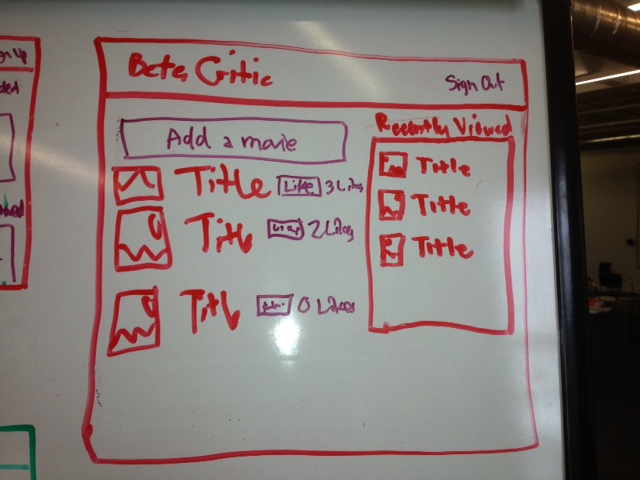 Beta Critic
Sign Out
Add a movie
Title Like 3 Likes
Title Like 2 Likes
Title 0 Likes
Recently Viewed
Title
Title
Title